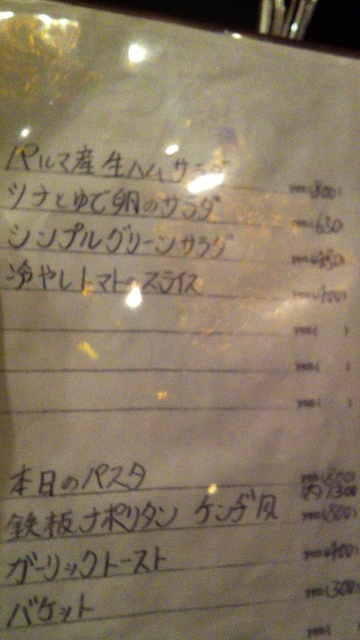 パルマ産生ハムサラダ yen(800)
ツナとゆで卵のサラダ yen(630)
シンプルグリーンサラダ yen(450)
冷やしトマトのスライス yen(400)
yen( )
yen( )
yen( )
本日のパスタ
鉄板ナポリタン ケンヂ風 yen(800)
ガーリックトースト yen(400)
バゲット yen(300)
yen(